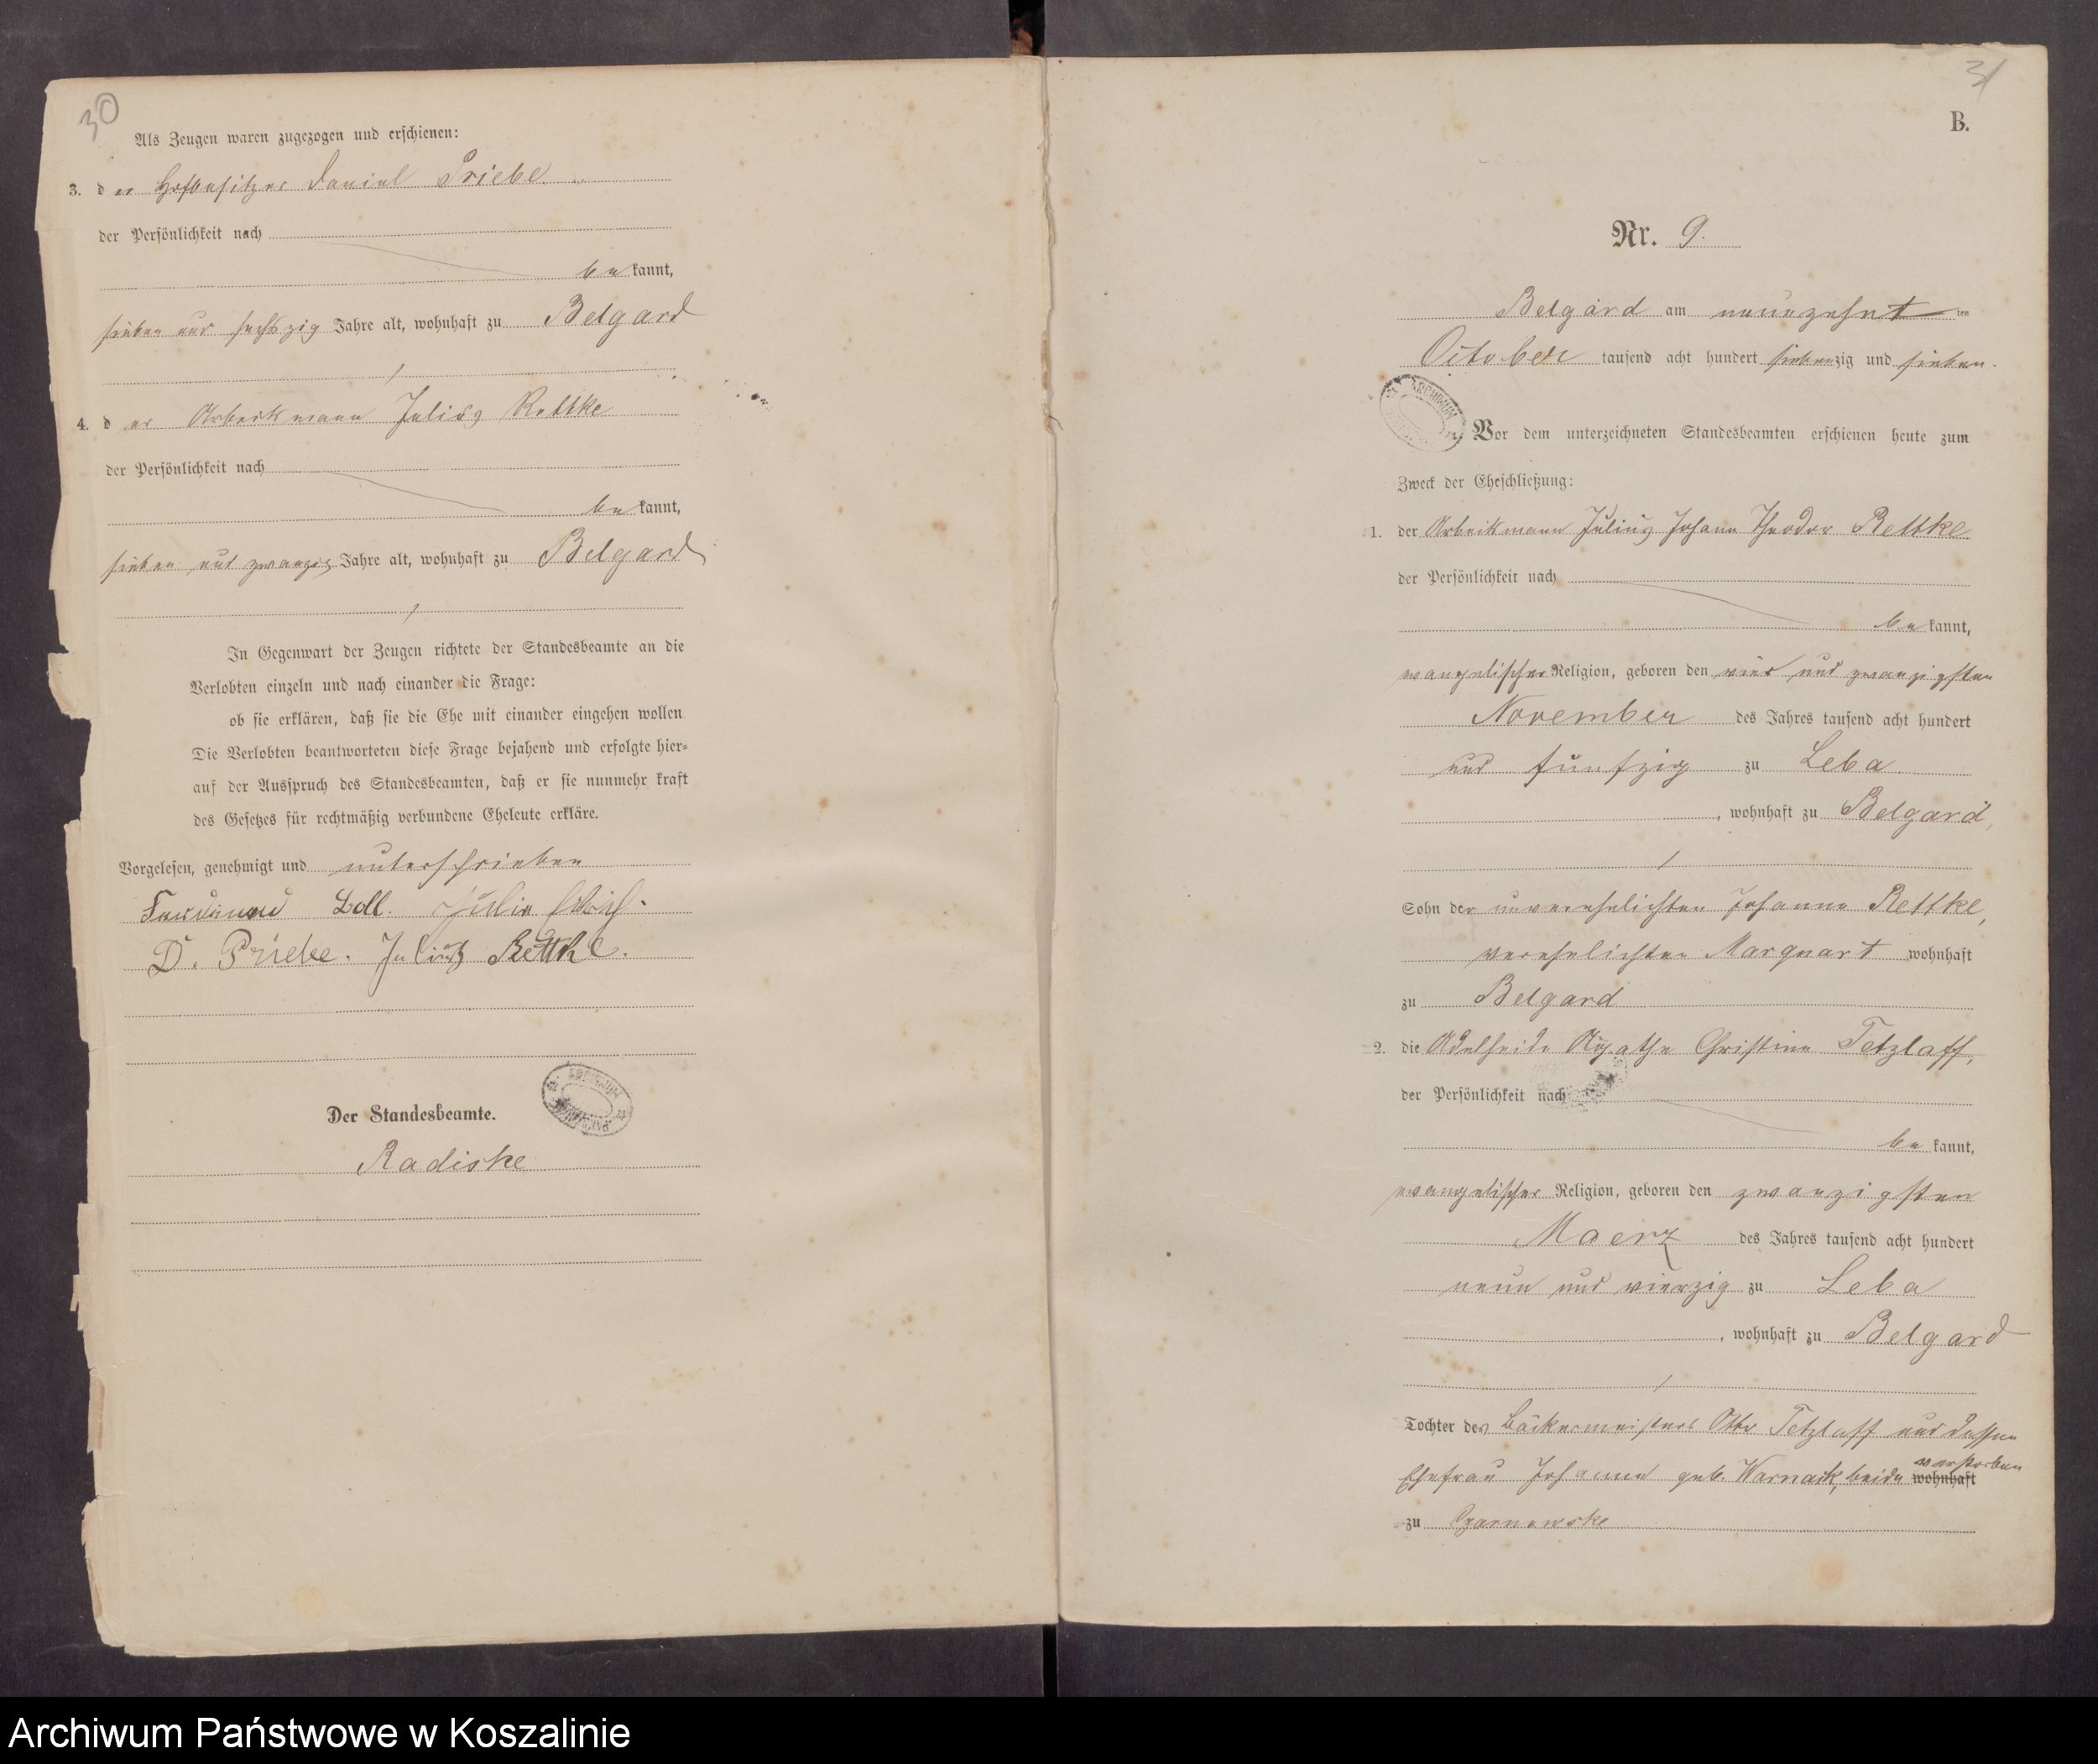 30
Als Zeugen waren zugezogen und erschienen:
3. der Hofbesitzer Daniel Priebe
der Persönlichkeit nach
be kannt,
sieben und sechszig Jahre alt, wohnhaft zu Belgard
4. der Arbeitsmann Julius Rettke
der Persönlichkeit nach
be kannt,
sieben und zwanzig Jahre alt, wohnhaft zu Belgard
In Gegenwart der Zeugen richtete der Standesbeamte an die
Verlobten einzeln und nach einander die Frage:
ob sie erklären, daß sie die Ehe mit einander eingehen wollen.
Die Verlobten beantworteten diese Frage bejahend und erfolgte hier=
auf der Ausspruch des Standesbeamten, daß er sie nunmehr kraft
des Gesetzes für rechtmäßig verbundene Eheleute erkläre.
Vorgelesen, genehmigt und unterschrieben
Ferdinand Boll. Julie
D. Priebe. Julius Rettke.
Der Standesbeamte.
Radiske
31
B.
Nr. 9.
Belgard am neunzehnt ten
October tausend acht hundert siebenzig und sieben.
Vor dem unterzeichneten Standesbeamten erschienen heute zum
Zweck der Eheschließung:
1. der Arbeitsmann Julius Johann Theodor Rettke
der Persönlichkeit nach
be kannt,
evangelischer Religion, geboren den vier und zwanzigsten
November des Jahres tausend acht hundert
und fünfzig zu Leba
, wohnhaft zu Belgard,
Sohn der unverehelichten Johanne Rettke,
verehelichten Marquart wohnhaft
zu Belgard
2. die Adelheide Agathe Christine Tetzlaff,
der Persönlichkeit nach
be kannt,
evangelischer Religion, geboren den zwanzigsten
Maerz des Jahres tausend acht hundert
neun und vierzig zu Leba
, wohnhaft zu Belgard
Tochter des Bäckermeisters Otto Tetzlaff und dessen
Ehefrau Johanne geb. Warnack, beide verstorben wohnhaft
zu Czarnowske
Archiwum Państwowe w Koszalinie